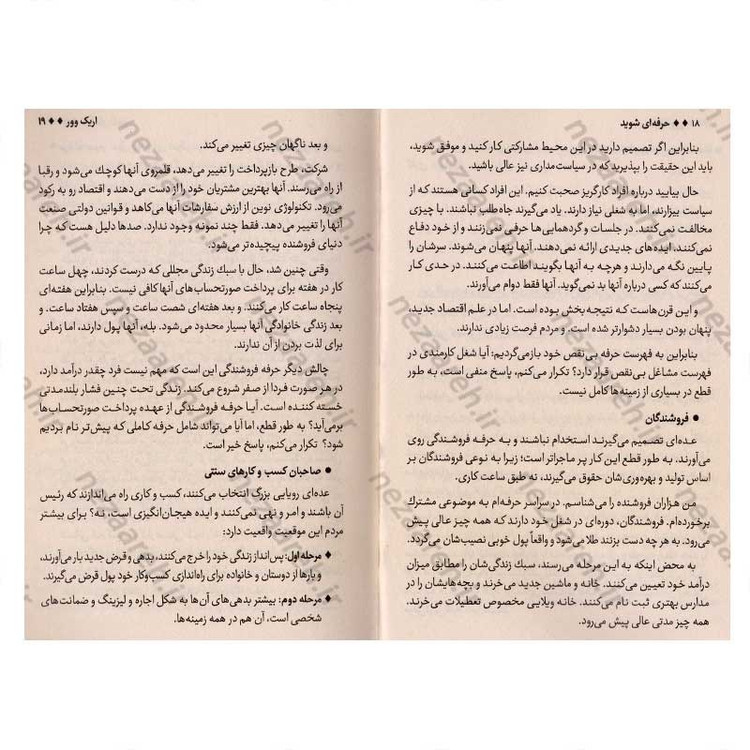 ۱۸ ♦♦ حرفه‌ای شوید
بنابراین اگر تصمیم دارید در این محیط مشارکتی کار کنید و موفق شوید،
باید این حقیقت را بپذیرید که در سیاست‌مداری نیز عالی باشید.
حال بیایید درباره افراد کارگریز صحبت کنیم. این افراد کسانی هستند که از
سیاست بیزارند، اما به شغلی نیاز دارند. یاد می‌گیرند جاه‌طلب نباشند. با چیزی
مخالفت نمی‌کنند. در جلسات و گردهمایی‌ها حرفی نمی‌زنند و از خود دفاع
نمی‌کنند. ایده‌های جدیدی ارائه نمی‌دهند. آنها پنهان می‌شوند. سرشان را
پایین نگه می‌دارند و هرچه به آنها بگویند اطاعت می‌کنند. در حدی کار
می‌کنند که کسی درباره آنها بد نمی‌گوید. آنها فقط دوام می‌آورند.
و این قرن‌هاست که نتیجه‌بخش بوده است. اما در علم اقتصاد جدید،
پنهان بودن بسیار دشوارتر شده است. و مردم فرصت زیادی ندارند.
بنابراین به فهرست حرفه بی‌نقص خود بازمی‌گردیم: آیا شغل کارمندی در
فهرست مشاغل بی‌نقص قرار دارد؟ تکرار می‌کنم، پاسخ منفی است، به طور
قطع در بسیاری از زمینه‌ها کامل نیست.
● فروشندگان
عده‌ای تصمیم می‌گیرند استخدام نباشند و به حرفه فروشندگی روی
می‌آورند. به طور قطع این کار پر ماجراتر است؛ زیرا به نوعی فروشندگان بر
اساس تولید و بهره‌وری‌شان حقوق می‌گیرند، نه طبق ساعت کاری.
من هزاران فروشنده را می‌شناسم. در سراسر حرفه‌ام به موضوعی مشترک
برخورده‌ام. فروشندگان، دوره‌ای در شغل خود دارند که همه چیز عالی پیش
می‌رود. به هر چه دست بزنند طلا می‌شود و واقعاً پول خوبی نصیب‌شان می‌گردد.
به محض اینکه به این مرحله می‌رسند، سبک زندگی‌شان را مطابق میزان
درآمد خود تعیین می‌کنند. خانه و ماشین جدید می‌خرند و بچه‌هایشان را در
مدارس بهتری ثبت نام می‌کنند. خانه ویلایی مخصوص تعطیلات می‌خرند.
همه چیز مدتی عالی پیش می‌رود.
اریک وور ♦♦ ۱۹
و بعد ناگهان چیزی تغییر می‌کند.
شرکت، طرح بازپرداخت را تغییر می‌دهد، قلمروی آنها کوچک می‌شود و رقبا
از راه می‌رسند. آنها بهترین مشتریان خود را از دست می‌دهند و اقتصاد رو به رکود
می‌رود. تکنولوژی نوین از ارزش سفارشات آنها می‌کاهد و قوانین دولتی صنعت
آنها را تغییر می‌دهد. فقط چند نمونه وجود ندارد. صدها دلیل هست که چرا
دنیای فروشنده پیچیده‌تر می‌شود.
وقتی چنین شد، حال با سبک زندگی مجللی که درست کردند، چهل ساعت
کار در هفته برای پرداخت صورتحساب‌های آنها کافی نیست. بنابراین هفته‌ای
پنجاه ساعت کار می‌کنند. و بعد هفته‌ای شصت ساعت و سپس هفتاد ساعت. و
بعد زندگی خانوادگی آنها بسیار محدود می‌شود. بله، آنها پول دارند، اما زمانی
برای لذت بردن از آن ندارند.
چالش دیگر حرفه فروشندگی این است که مهم نیست فرد چقدر درآمد دارد،
در هر صورت فردا از صفر شروع می‌کند. زندگی تحت چنین فشار بلندمدتی
خسته کننده است. آیا حرفه فروشندگی از عهده پرداخت صورتحساب‌ها
برمی‌آید؟ به طور قطع، اما آیا می‌تواند شامل حرفه کاملی که پیش‌تر نام بردیم
شود؟ تکرار می‌کنم، پاسخ خیر است.
● صاحبان کسب و کارهای سنتی
عده‌ای رویایی بزرگ انتخاب می‌کنند، کسب و کاری راه می‌اندازند که رئیس
آن باشند و امر و نهی نمی‌کنند و ایده هیجان‌انگیزی است، نه؟ برای بیشتر
مردم این موقعیت واقعیت دارد:
♦ مرحله اول: پس‌انداز زندگی خود را خرج می‌کنند، بدهی و قرض جدید بار می‌آورند،
و بارها از دوستان و خانواده برای راه‌اندازی کسب‌وکار خود پول قرض می‌گیرند.
♦ مرحله دوم: بیشتر بدهی‌های آن‌ها به شکل اجاره و لیزینگ و ضمانت های
شخصی است، آن هم در همه زمینه‌ها.
nezaareh.ir